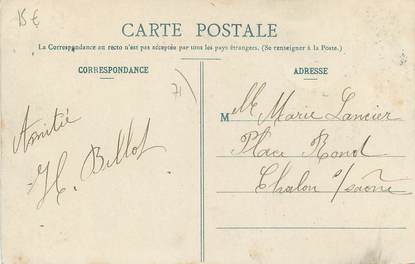 15 €
CARTE POSTALE
La Correspondance au recto n'est pas acceptée par tous les pays étrangers. (Se renseigner à la Poste.)
CORRESPONDANCE
71
Amitié
H. Billot
ADRESSE
M Marie Lancier
Place Rond
Chalon s/saône